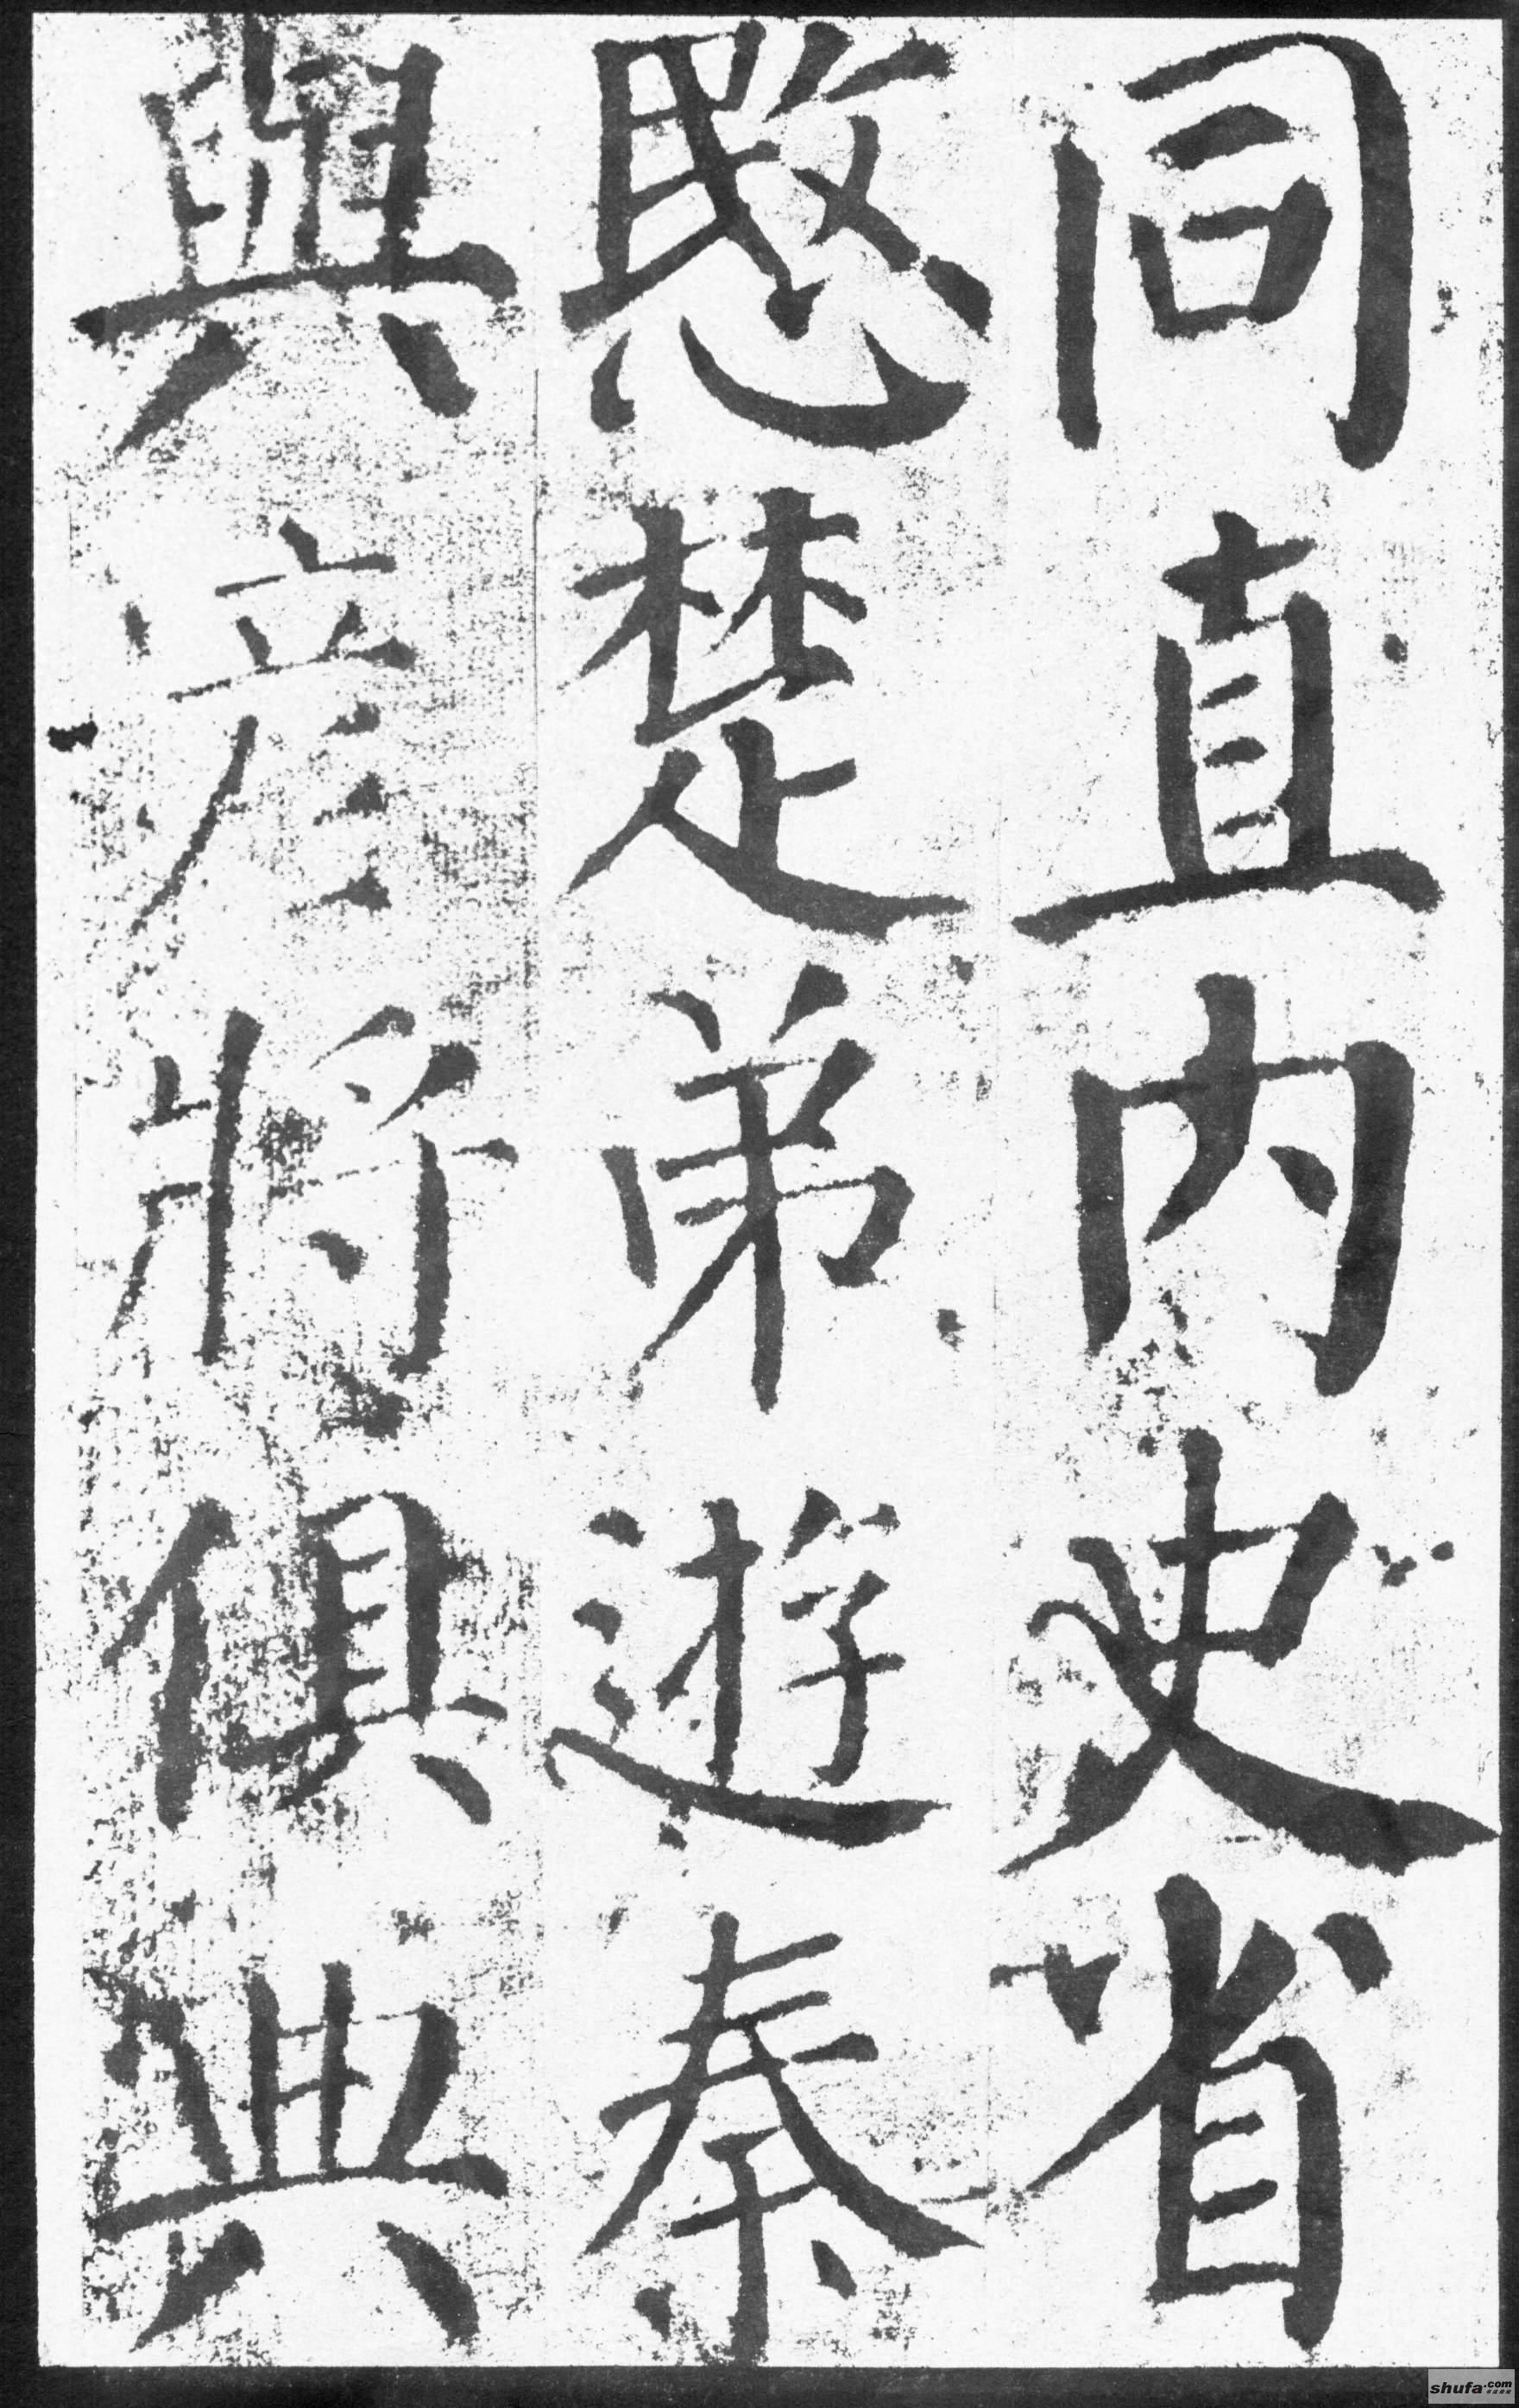 同直内史省
愍楚弟遊秦
與彥將俱典
shufa.com